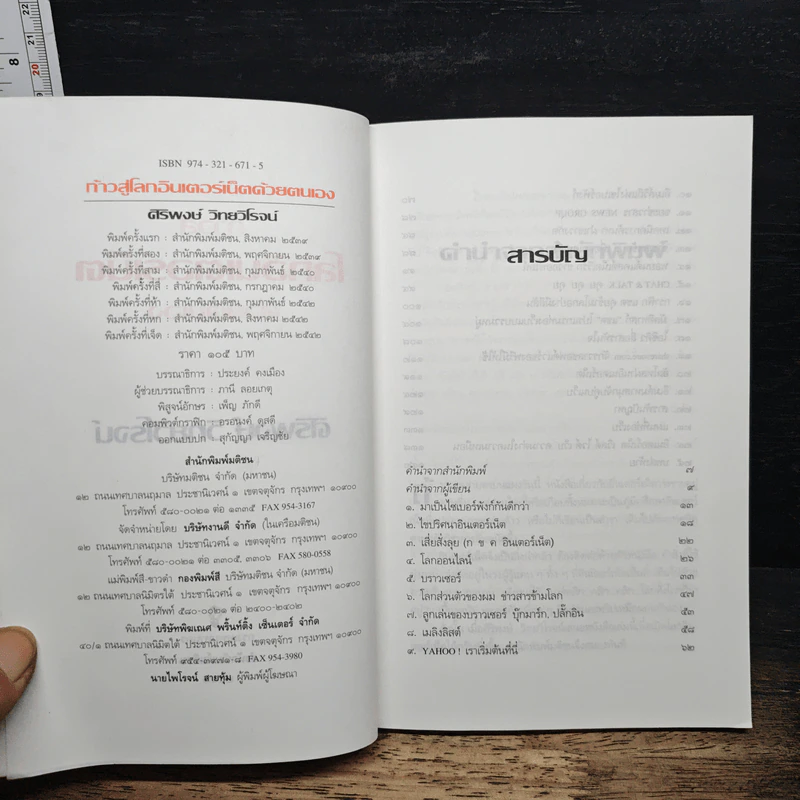 ISBN 974 - 321 - 671 - 5
ก้าวสู่โลกอินเตอร์เน็ตด้วยตนเอง
ศิริพงษ์ วิทยวิโรจน์
พิมพ์ครั้งแรก : สำนักพิมพ์มติชน, สิงหาคม ๒๕๓๙
พิมพ์ครั้งที่สอง : สำนักพิมพ์มติชน, พฤศจิกายน ๒๕๓๙
พิมพ์ครั้งที่สาม : สำนักพิมพ์มติชน, กุมภาพันธ์ ๒๕๔๐
พิมพ์ครั้งที่สี่ : สำนักพิมพ์มติชน, กรกฎาคม ๒๕๔๐
พิมพ์ครั้งที่ห้า : สำนักพิมพ์มติชน, กุมภาพันธ์ ๒๕๔๒
พิมพ์ครั้งที่หก : สำนักพิมพ์มติชน, สิงหาคม ๒๕๔๒
พิมพ์ครั้งที่เจ็ด : สำนักพิมพ์มติชน, พฤศจิกายน ๒๕๔๒
ราคา ๑๐๕ บาท
บรรณาธิการ : ประยงค์ คงเมือง
ผู้ช่วยบรรณาธิการ : ภานี ลอยเกตุ
พิสูจน์อักษร : เพ็ญ ภักดี
คอมพิวต์กราฟิก : อรอนงค์ ดุสดี
ออกแบบปก : สุกัญญา เจริญชัย
สำนักพิมพ์มติชน
บริษัทมติชน จำกัด (มหาชน)
๑๒ ถนนเทศบาลนฤมาล ประชานิเวศน์ ๑ เขตจตุจักร กรุงเทพฯ ๑๐๙๐๐
โทรศัพท์ ๕๘๐-๐๐๒๑ ต่อ ๑๓๓๕ FAX 954-3167
จัดจำหน่ายโดย บริษัทงานดี จำกัด (ในเครือมติชน)
๑๒ ถนนเทศบาลนฤมาล ประชานิเวศน์ ๑ เขตจตุจักร กรุงเทพฯ ๑๐๙๐๐
โทรศัพท์ ๕๘๐-๐๐๒๑ ต่อ ๓๓๐๕, ๓๓๐๖ FAX 580-0558
แม่พิมพ์สี-ขาวดำ กองพิมพ์สี บริษัทมติชน จำกัด (มหาชน)
๑๒ ถนนเทศบาลนิมิตรใต้ ประชานิเวศน์ ๑ เขตจตุจักร กรุงเทพฯ ๑๐๙๐๐
โทรศัพท์ ๕๘๐-๐๐๒๑ ต่อ ๒๔๐๐-๒๔๐๒
พิมพ์ที่ บริษัทพิฆเณศ พริ้นท์ติ้ง เซ็นเตอร์ จำกัด
๔๐/๑ ถนนเทศบาลนิมิตใต้ ประชานิเวศน์ ๑ เขตจตุจักร กรุงเทพฯ ๑๐๙๐๐
โทรศัพท์ ๙๕๔-๓๙๗๑-๘ FAX 954-3980
นายไพโรจน์ สายทุ้ม ผู้พิมพ์ผู้โฆษณา
สารบัญ
คำนำจากสำนักพิมพ์ ๗
คำนำจากผู้เขียน ๙
๑. มาเป็นไซเบอร์พังก์กันดีกว่า ๑๓
๒. ไขปริศนาอินเตอร์เน็ต ๑๘
๓. เสี่ยสั่งลุย (ก ข ค อินเตอร์เน็ต) ๒๒
๔. โลกออนไลน์ ๒๖
๕. บราวเซอร์ ๓๓
๖. โลกส่วนตัวของผม ข่าวสารข้ามโลก ๔๗
๗. ลูกเล่นของบราวเซอร์ บุ๊กมาร์ก, ปลั๊กอิน ๕๓
๘. เมลิงลิสต์ ๕๘
๙. YAHOO ! เราเริ่มต้นที่นี่ ๖๒